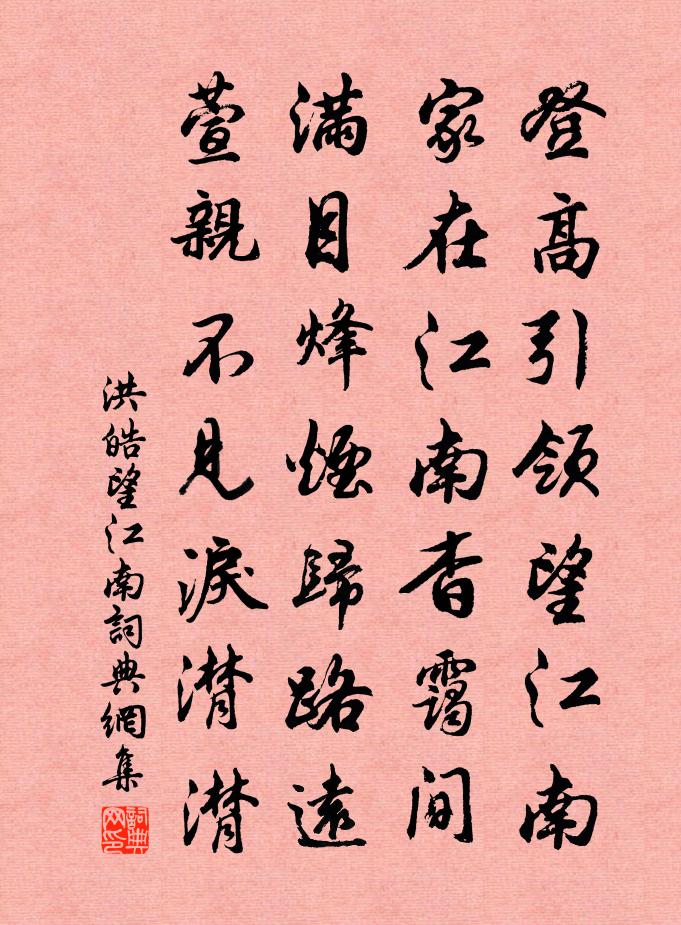 登高引領望江南
家在江南杳靄间
滿目烽煙歸路遠
萱親不見淚潸潸
洪皓望江南詞典網集
詞典网印